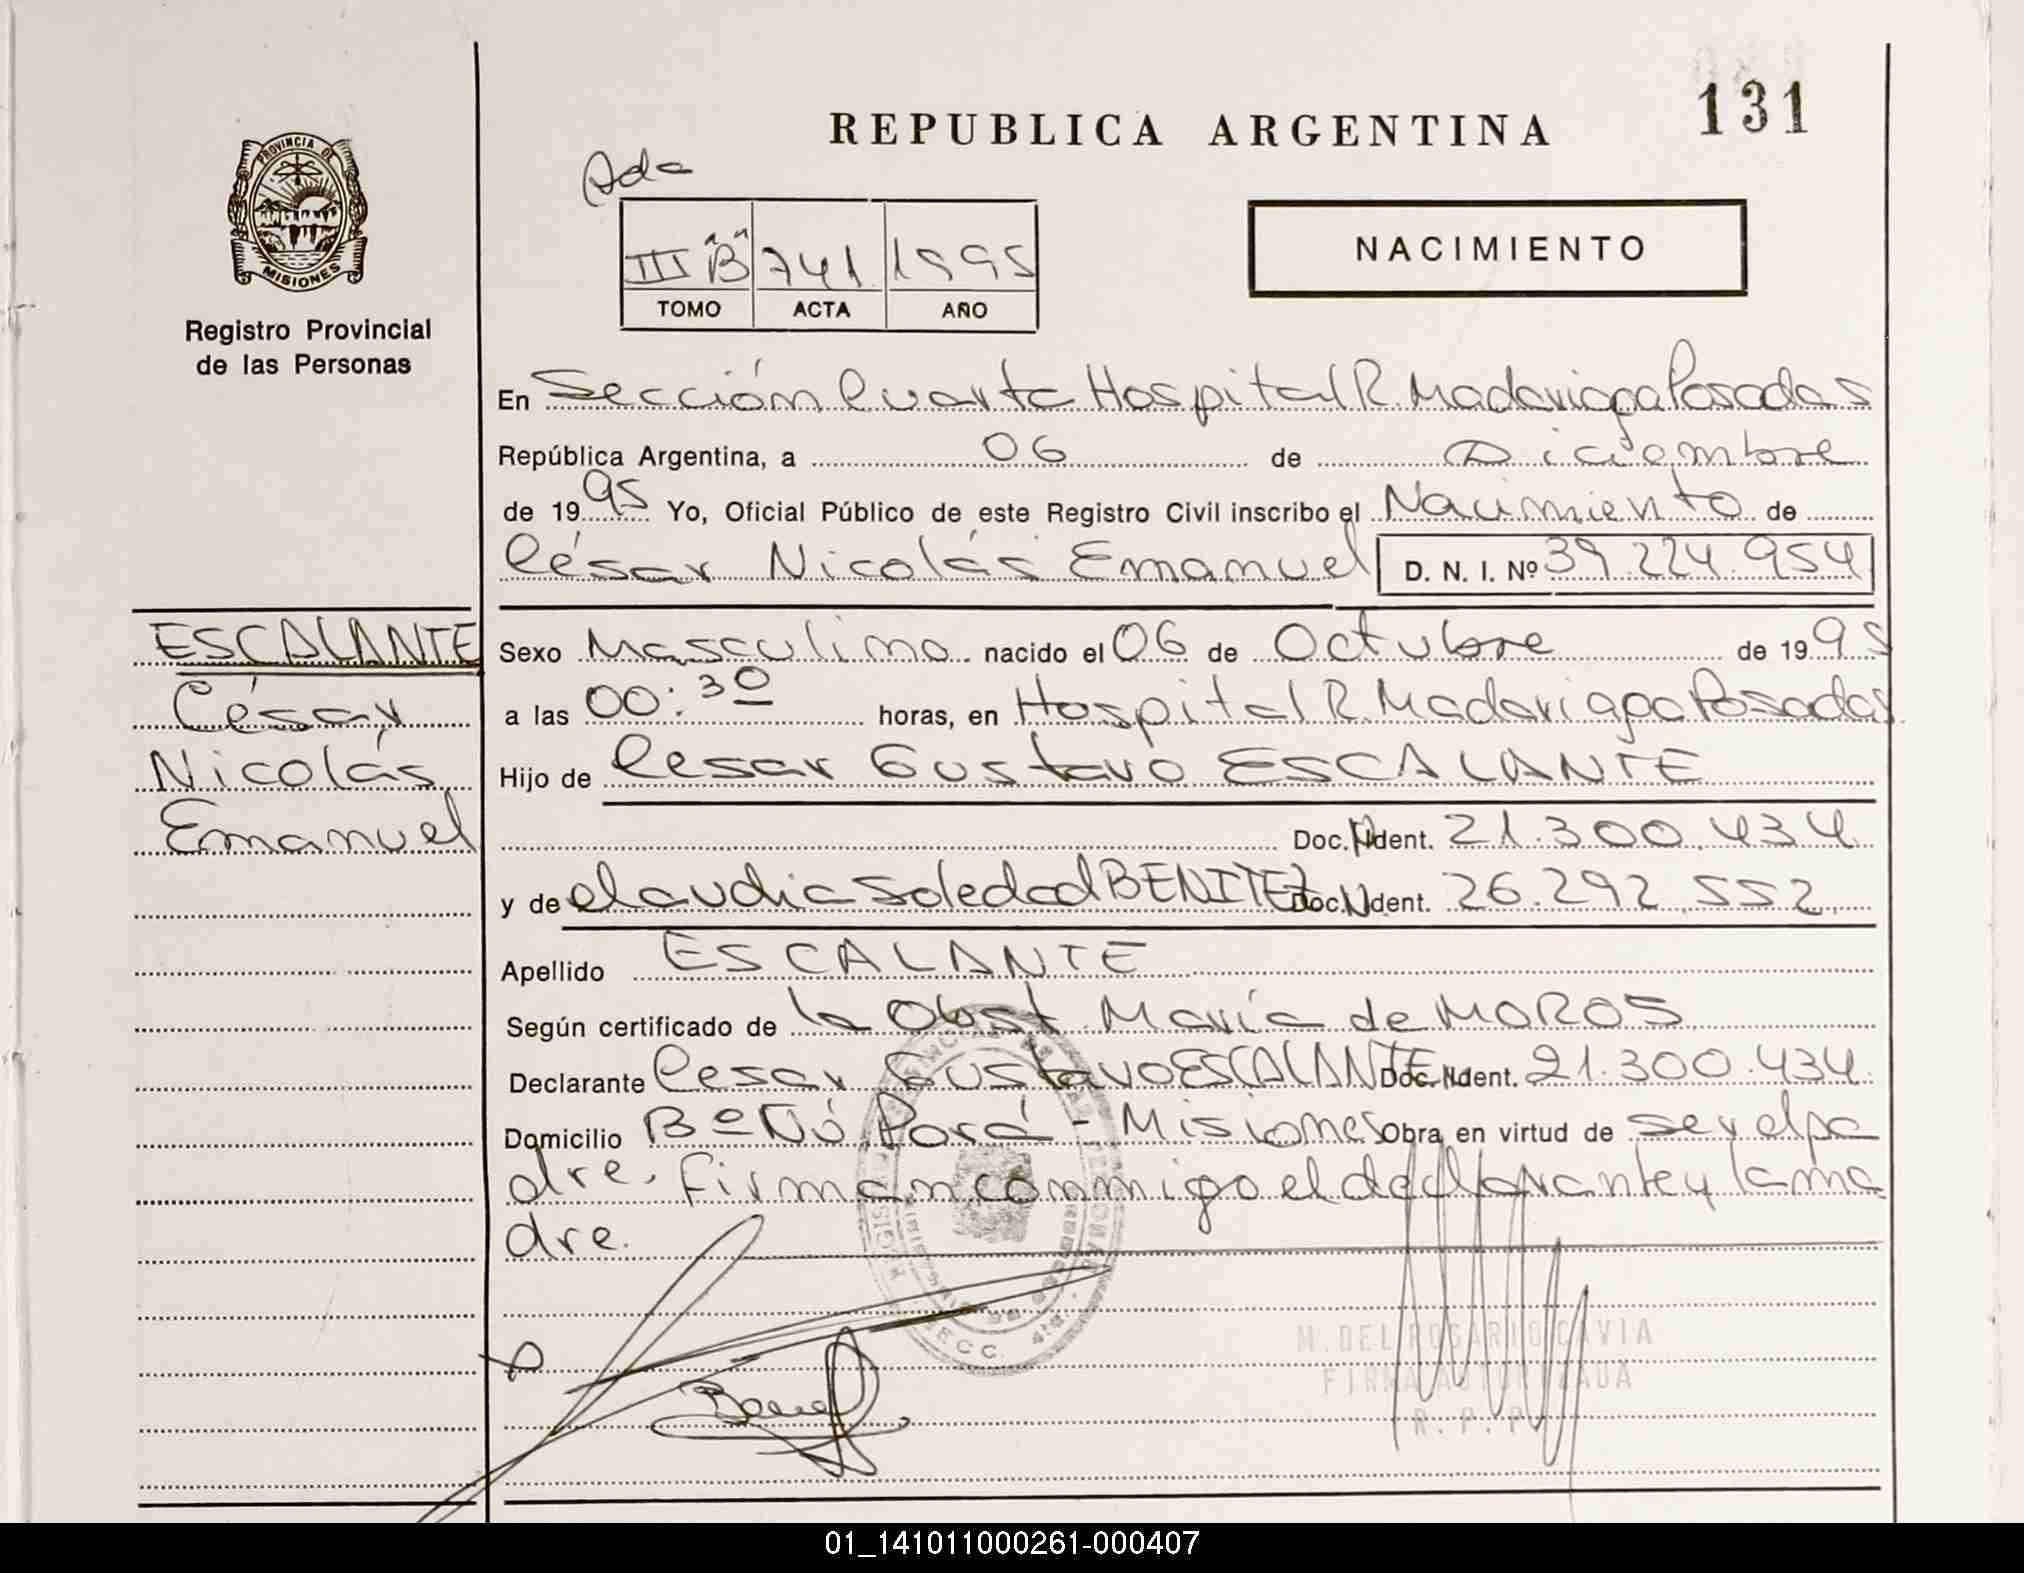 131
REPUBLICA ARGENTINA
PROVINCIA DE
MISIONES
Registro Provincial
de las Personas
III "B" 741 1995
TOMO ACTA AÑO
NACIMIENTO
En Sección Cuarta Hospital R. Madariaga Posadas
República Argentina, a 06 de Diciembre
de 1995 Yo, Oficial Público de este Registro Civil inscribo el Nacimiento de
César Nicolás Emanuel D. N. I. Nº 39.224.954
ESCALANTE
César
Nicolás
Emanuel
Sexo Masculino nacido el 06 de Octubre de 1995
a las 00:30 horas, en Hospital R. Madariaga Posadas
Hijo de Cesar Gustavo ESCALANTE
Doc. Ident. 21.300.434
y de Claudia Soledad BENITEZ Doc. Ident. 26.292.552
Apellido ESCALANTE
Según certificado de la Obst. María de MOROS
Declarante Cesar Gustavo ESCALANTE Doc. Ident. 21.300.434
Domicilio Bº Ñú Porá - Misiones Obra en virtud de ser el pa
dre. Firman conmigo el declarante y la ma
dre.
M. DEL ROSARIO CAVIA
FIRMA AUTORIZADA
R. P. P.
01_141011000261-000407